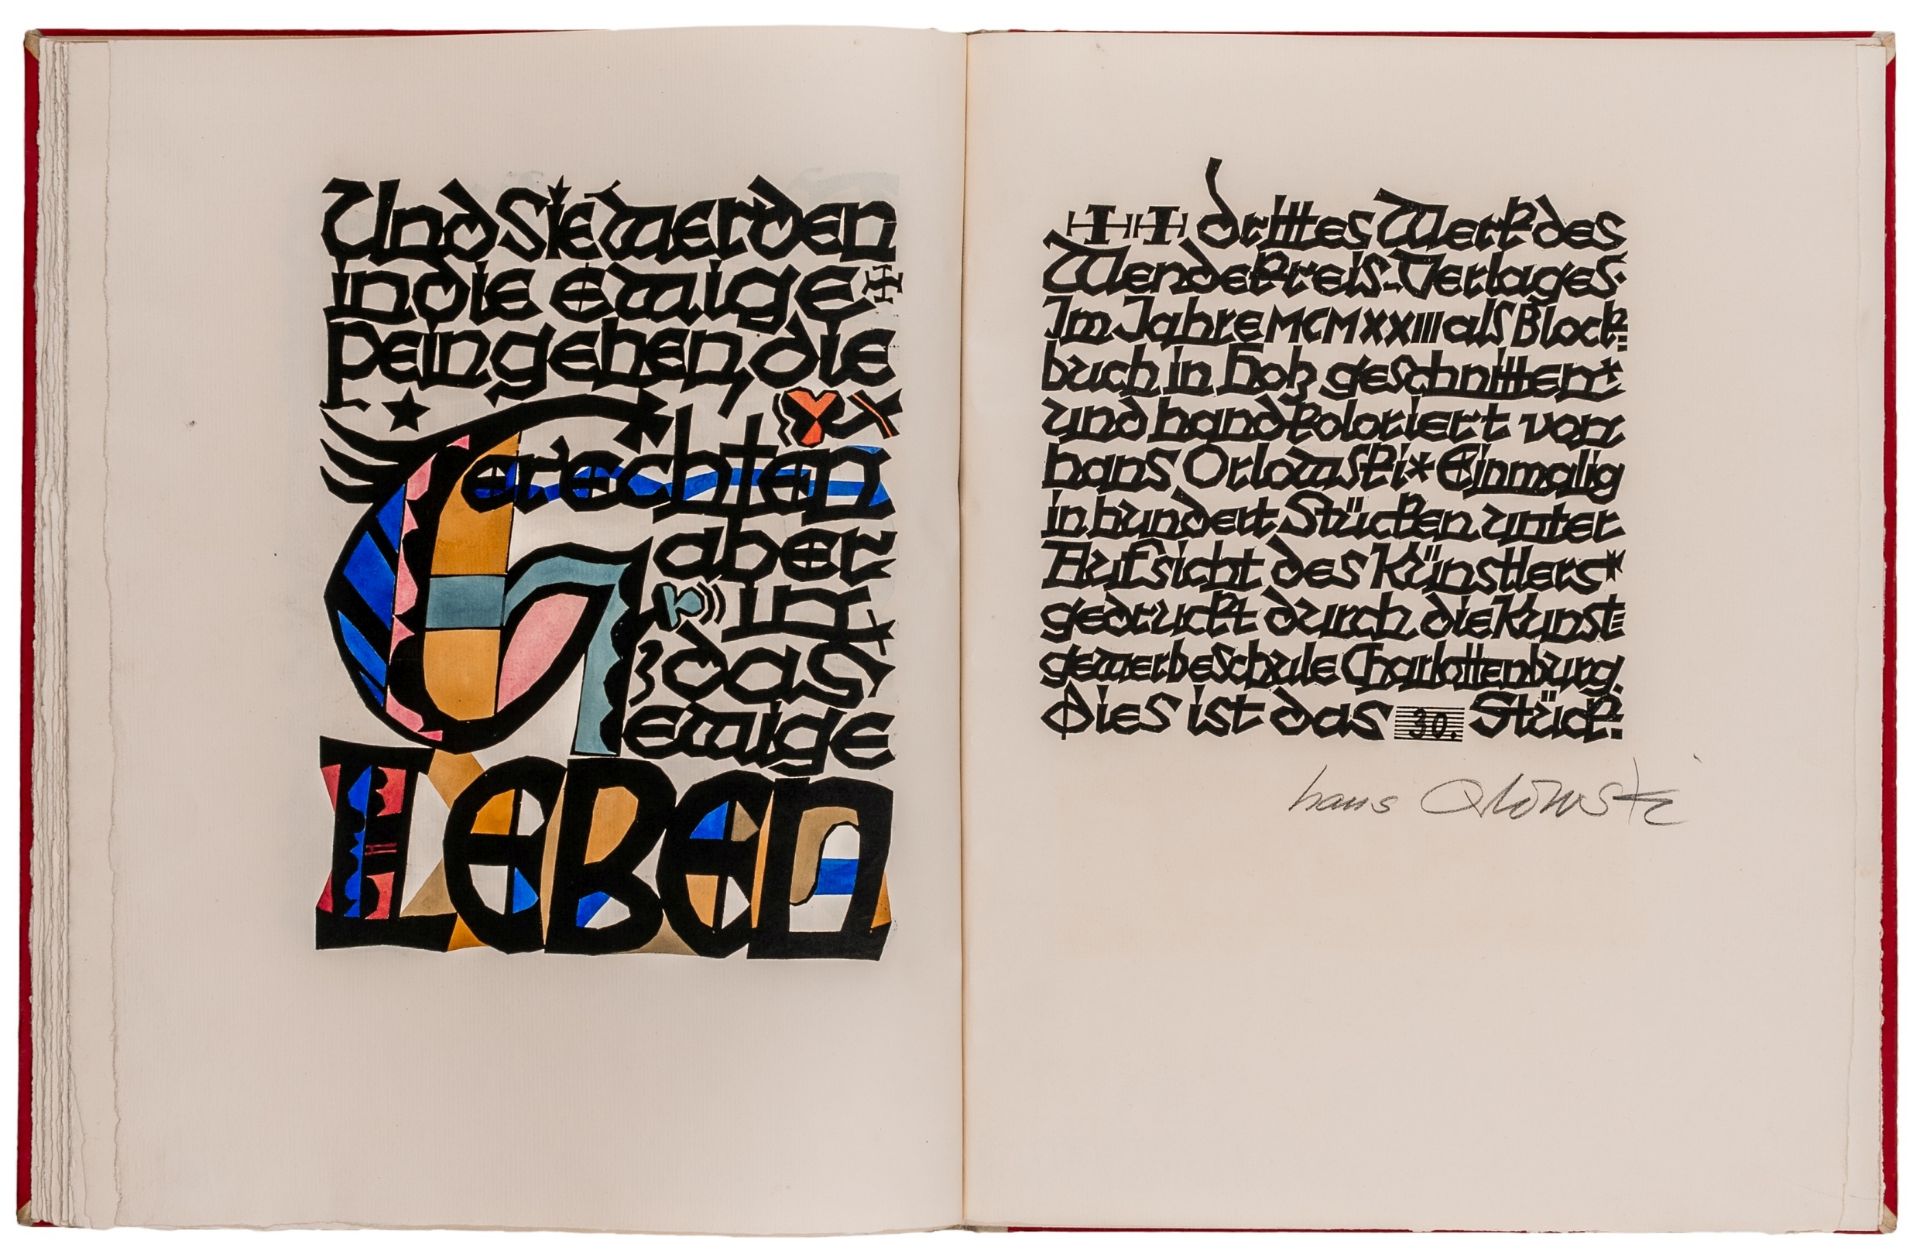 Und Sie werden
in die Ewige
Pein gehen, die
Gerechten
aber
in
das
Ewige
Leben
drittes Werk des
WendeKreis-Verlages.
Im Jahre MCMXXIII als Block-
buch in Holz geschnitten
und handkoloriert von
hans Orlowski * Einmalig
in hundert Stücken unter
Aufsicht des Künstlers
gedruckt durch die Kunst-
gewerbeschule Charlottenburg.
Dies ist das 30. Stück.
hans Orlowski